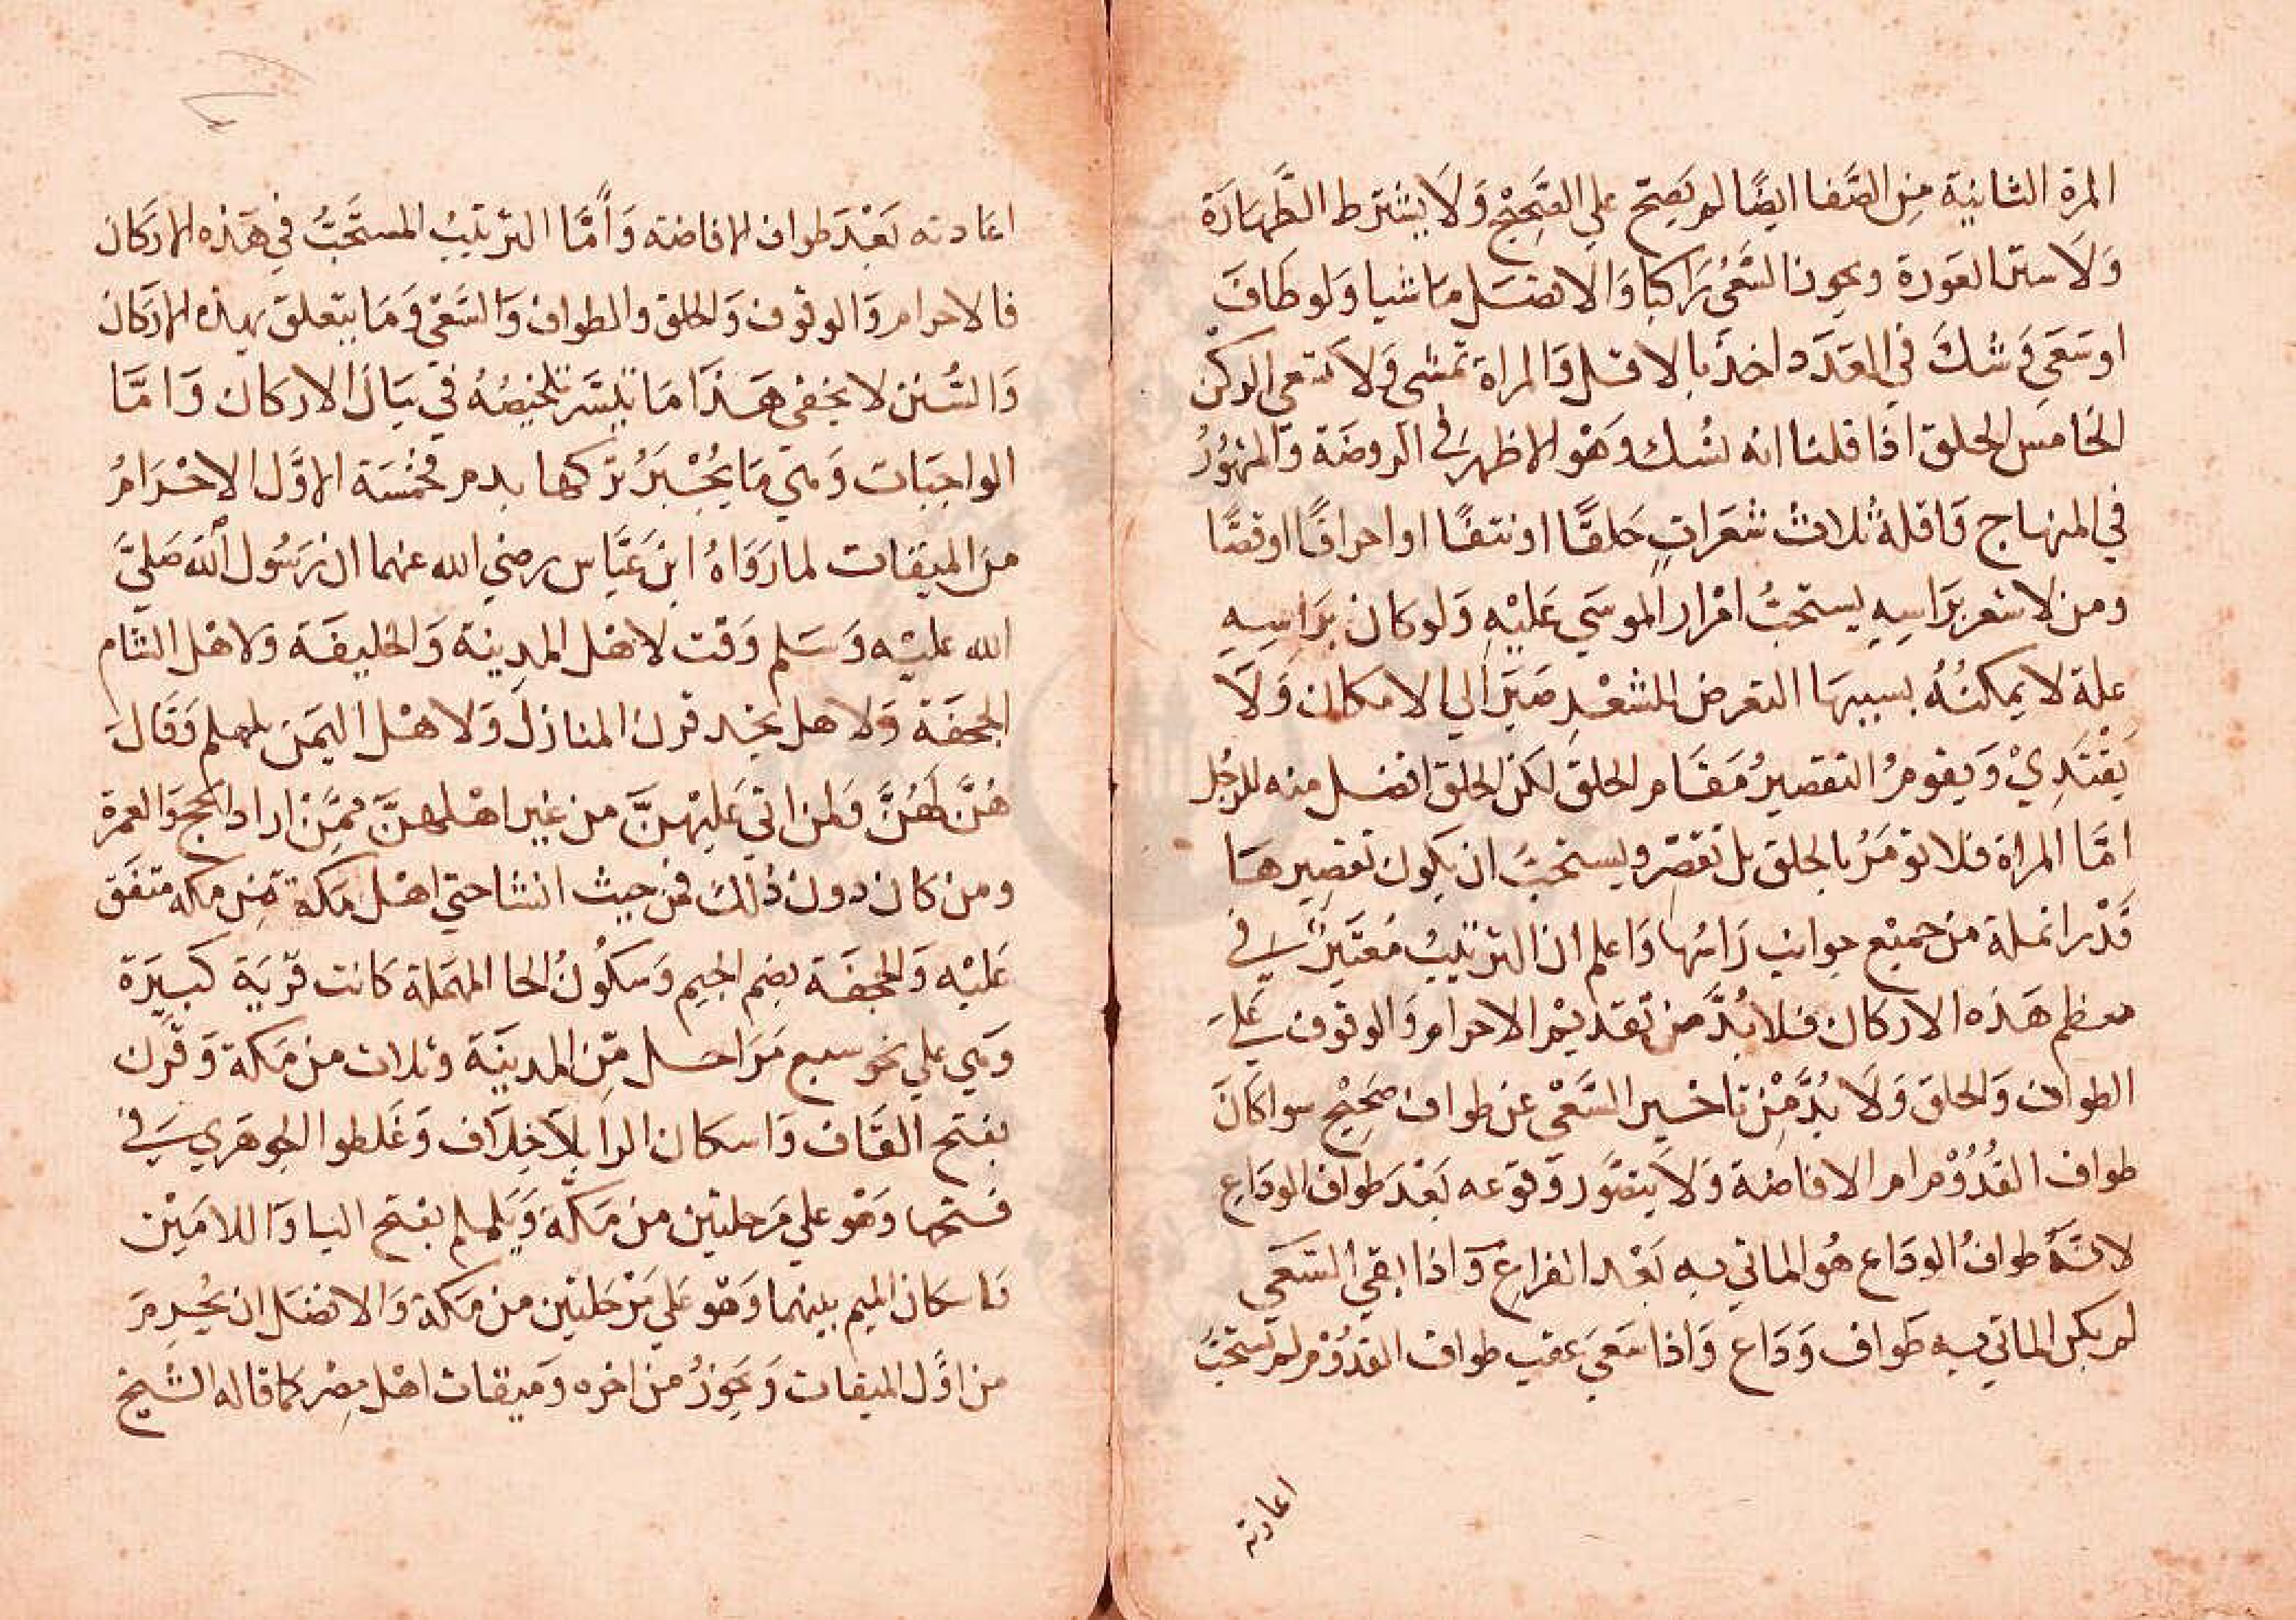 المرة الثانية من الصَّفا ايضًا لم يَصِح علي الصَّحِيْح وَلَا يشترط الطَّهَارَة
وَلَا ستر العَورة ويجوز السَّعْيُ رَاكبا وَالافضَل مَاشيا وَلو طَافَ
او سَعَي وَشك في العَدَد اخذ بالاقل وَالمراة تمشى وَلا تسعى الركن
الخامس الحلق اذا قلنا انه نسُك وَهْو الاظهر في الروضَة وَالمشهوُرُ
في المنهاج وَاقلهُ ثلاث شعَراتٍ حَلقًا او نتفًا او احراقًا اوقصًّا
ومن لا شعر برَاسِهِ يستحبُّ امْرار الموسَي عَليْهِ وَلو كان برَاسِهِ
علة لا يمكنُهُ بسببهَا التعرض للشعْر صَبَرَ الي الامكان وَلَا
يَفْتَدِيْ وَيقومُ التقصيرُ مَقَام الحلق لكن الحلق افضل منه للرجُل
امَّا المراة فلا تومَرُ بالحلق بل تقصّر ويستحبُّ ان يكون تقصِيرهَا
قَدْر انملة من جميْع جوانب رَاسُها وَاعلم ان الترتيبُ مُعتَبرٌ في
معظم هَذه الاركان فلا بُدَّ من تقديْم الاحرام وَالوقوف عَلي
الطواف وَالحلق وَلَا بُدَّ مِّنْ تاخير السَّعْي عن طواف صَحِيْح سوا كانَ
طواف القُدُوْم ام الافاضة وَلَا يتصَوَر وَقوعه بَعْدَ طوَاف الودَاعِ
لانَّهُ طوافُ الودَاع هُو الماتي به بَعْد الفراغ وَاذا بقي السَّعَي
لم يكن الماتي به طَواف وَدَاع وَاذا سَعَي عَقيب طواف القدوُم لم يَستحبُّ
اعادته
اعَادته بَعْدَ طواف الافاضة وَأمَّا الترتيبُ المستَحبُّ في هَذه الاركان
فالاحرام وَالوقوف وَالحلق والطواف وَالسَّعْي وَمَا يتعلق بهذه الاركان
وَالسُّنن لا يخفى هَذَا مَا تيَسَّر تلخيصُهُ في بَيَان الاركان وَامَّا
الواجبَات وَهي مَا يُجْبَرُ تركها بدم فخمْسَة الاوَّل الاحْرَامُ
من الميقات لما رَوَاهُ ابن عَبَّاس رضي الله عنهما ان رَسُول الله صَليَّ
الله عليْه وَسَلم وَقت لاهْل المدِينَة وَالحليفَة وَلاهْل الشام
الجحفَة وَلاهل نجد قرن المنازل وَلاهْل اليَمَن يلملم وَقَالَ
هُنَّ لَهُنَّ وَلمن اتي عَليْهنَّ من غير اهْلهنَّ ممَّن اراد الحج وَالعمرة
ومن كان دون ذلك فمن حيث انشا حتي اهْل مَكة مِن مكة متفَق
عَليْه وَالجحفَة بضم الجيم وَسكُونُ الحا المهمَلة كانت قريَة كبيَرة
وَهي علي نحو سبع مَرَاحل مِّن المدينَة وثلاث من مَكة وَقرن
بفتح القَاف وَاسكان الرا بلَا خِلَاف وَغَلطوا الجوهَري في
فتحها وَهْو علي مَرحلتين من مَكة وَيَلملم بفتح اليا وَاللامَيْن
وَاسكان الميم بينهما وَهْو عَلي مَرْحَلتيْن من مَكة وَالافضَل ان يُحْرِمَ
من اوَّل الميقات وَيجُوزُ من اخره وَميقات اهْل مِصْر كما قاله الشيْخ